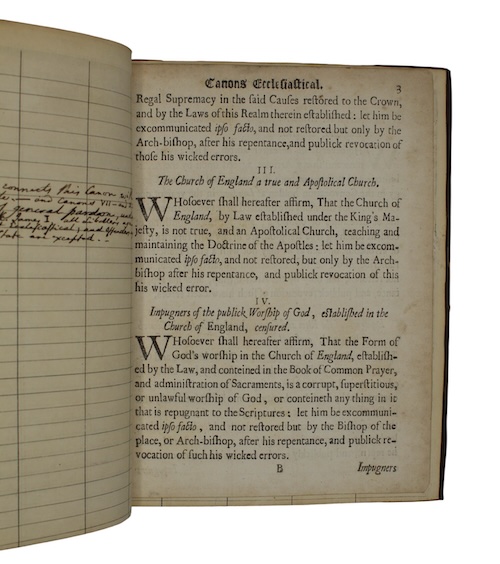 connects this Canon
and Canons VII
general pardon,
Ecclesiastical; and offenders
are excepted.
Canons Ecclesiastical. 3
Regal Supremacy in the ſaid Cauſes reſtored to the Crown,
and by the Laws of this Realm therein eſtabliſhed: let him be
excommunicated ipſo facto, and not reſtored but only by the
Arch-biſhop, after his repentance, and publick revocation of
thoſe his wicked errors.
III.
The Church of England a true and Apoſtolical Church.
WHoſoever ſhall hereafter affirm, That the Church of
England, by Law eſtabliſhed under the King's Ma-
jeſty, is not true, and an Apoſtolical Church, teaching and
maintaining the Doctrine of the Apoſtles: let him be excom-
municated ipſo facto, and not reſtored, but only by the Arch-
biſhop after his repentance, and publick revocation of this
his wicked error.
IV.
Impugners of the publick Worſhip of God, eſtabliſhed in the
Church of England, cenſured.
WHoſoever ſhall hereafter affirm, That the Form of
God's worſhip in the Church of England, eſtabliſh-
ed by the Law, and conteined in the Book of Common Prayer,
and adminiſtration of Sacraments, is a corrupt, ſuperſtitious,
or unlawful worſhip of God, or conteineth any thing in it
that is repugnant to the Scriptures: let him be excommuni-
cated ipſo facto, and not reſtored but by the Biſhop of the
place, or Arch-biſhop, after his repentance, and publick re-
vocation of ſuch his wicked errors.
B Impugners